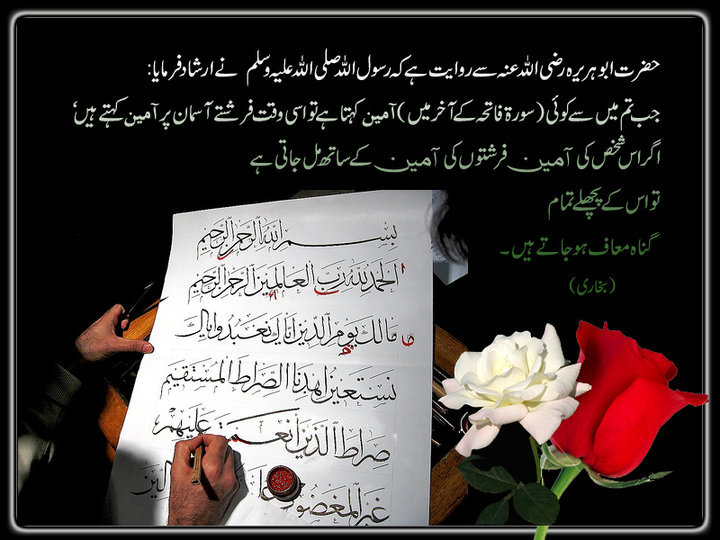 حضرت ابو ہریرہ رضی اللہ عنہ سے روایت ہے کہ رسول اللہ صلی اللہ علیہ وسلم نے ارشاد فرمایا:
جب تم میں سے کوئی (سورۃ فاتحہ کے آخر میں) آمین کہتا ہے تو اسی وقت فرشتے آسمان پر آمین کہتے ہیں،
اگر اس شخص کی آمین فرشتوں کی آمین کے ساتھ مل جاتی ہے
تو اس کے پچھلے تمام
گناہ معاف ہو جاتے ہیں۔
(بخاری)
بسم الله الرحمن الرحيم
الحمد لله رب العالمين الرحمن الرحيم
مالك يوم الدين اياك نعبد واياك
نستعين اهدنا الصراط المستقيم
صراط الذين أنعمت عليهم
غير المغضوب